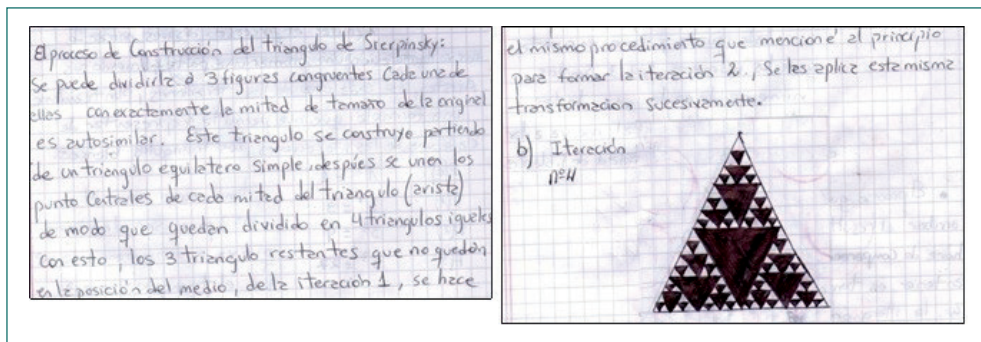 El proceso de Construcción del triangulo de Sierpinsky:
Se puede dividirlz ó 3 figuras congruentes Cada una de
ellas con exactamente la mitad de tamaño de la original
es autosimilar. Este triangulo se construye partiendo
de un triangulo equilatero simple, despúes se unen los
punto Centrales de cada mitad del triangulo (arista)
de modo que quedan dividido en 4 triangulos iguales
con esto, los 3 triangulo restantes que no quedan
en la posición del medio, de la iteración 1, se hace
el mismo procedimiento que mencioné al principio
para formar la iteración 2., Se les aplica esta misma
transformacion Sucesivamente.
b) Iteración
nº4